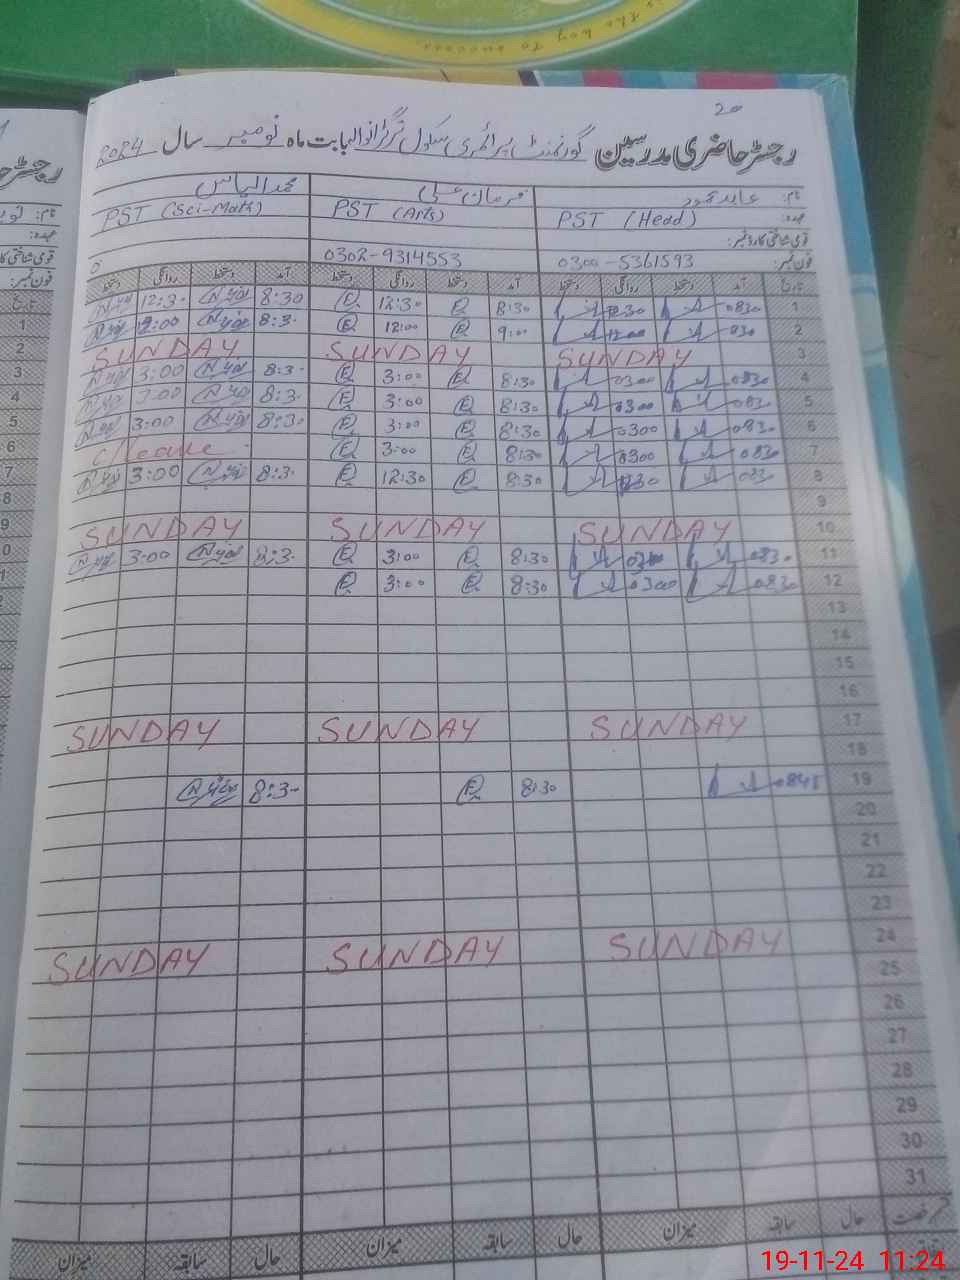 is the key to success
20
رجسٹر حاضری مدرسین گورنمنٹ پرائمری سکول بابت ماہ نومبر سال 2024
نام: عابد محمود فرمان علی محمد الیاس
عہدہ: PST (Head) PST (Arts) PST (Sci-Math)
قومی شناختی کارڈ نمبر:
فون نمبر: 0300-5361593 0302-9314553 0
تاریخ آمد دستخط روانگی دستخط آمد دستخط روانگی دستخط آمد دستخط روانگی دستخط
1 0830 1230 8:30 E 12:30 E 8:30 12:30
2 830 1200 9:00 E 12:00 E 8:30 12:00
3 SUNDAY SUNDAY SUNDAY
4 0830 0300 8:30 E 3:00 E 8:30 3:00
5 0830 0300 8:30 E 3:00 E 8:30 3:00
6 0830 0300 8:30 E 3:00 E 8:30 3:00
7 0830 0300 8:30 E 3:00 E C/leave
8 0830 1230 8:30 E 12:30 E 8:30 3:00
9
10 SUNDAY SUNDAY SUNDAY
11 0830 0300 8:30 E 3:00 E 8:30 3:00
12 0830 0300 8:30 E 3:00 E
13
14
15
16
17 SUNDAY SUNDAY SUNDAY
18
19 0845 8:30 E 8:30
20
21
22
23
24 SUNDAY SUNDAY SUNDAY
25
26
27
28
29
30
31
حال سابقہ میزان حال سابقہ میزان حال سابقہ میزان
رجسٹر
نام:
عہدہ:
قومی شناختی کارڈ
فون نمبر:
تاریخ
1
2
3
4
5
6
7
8
9
0
1
2
19-11-24 11:24